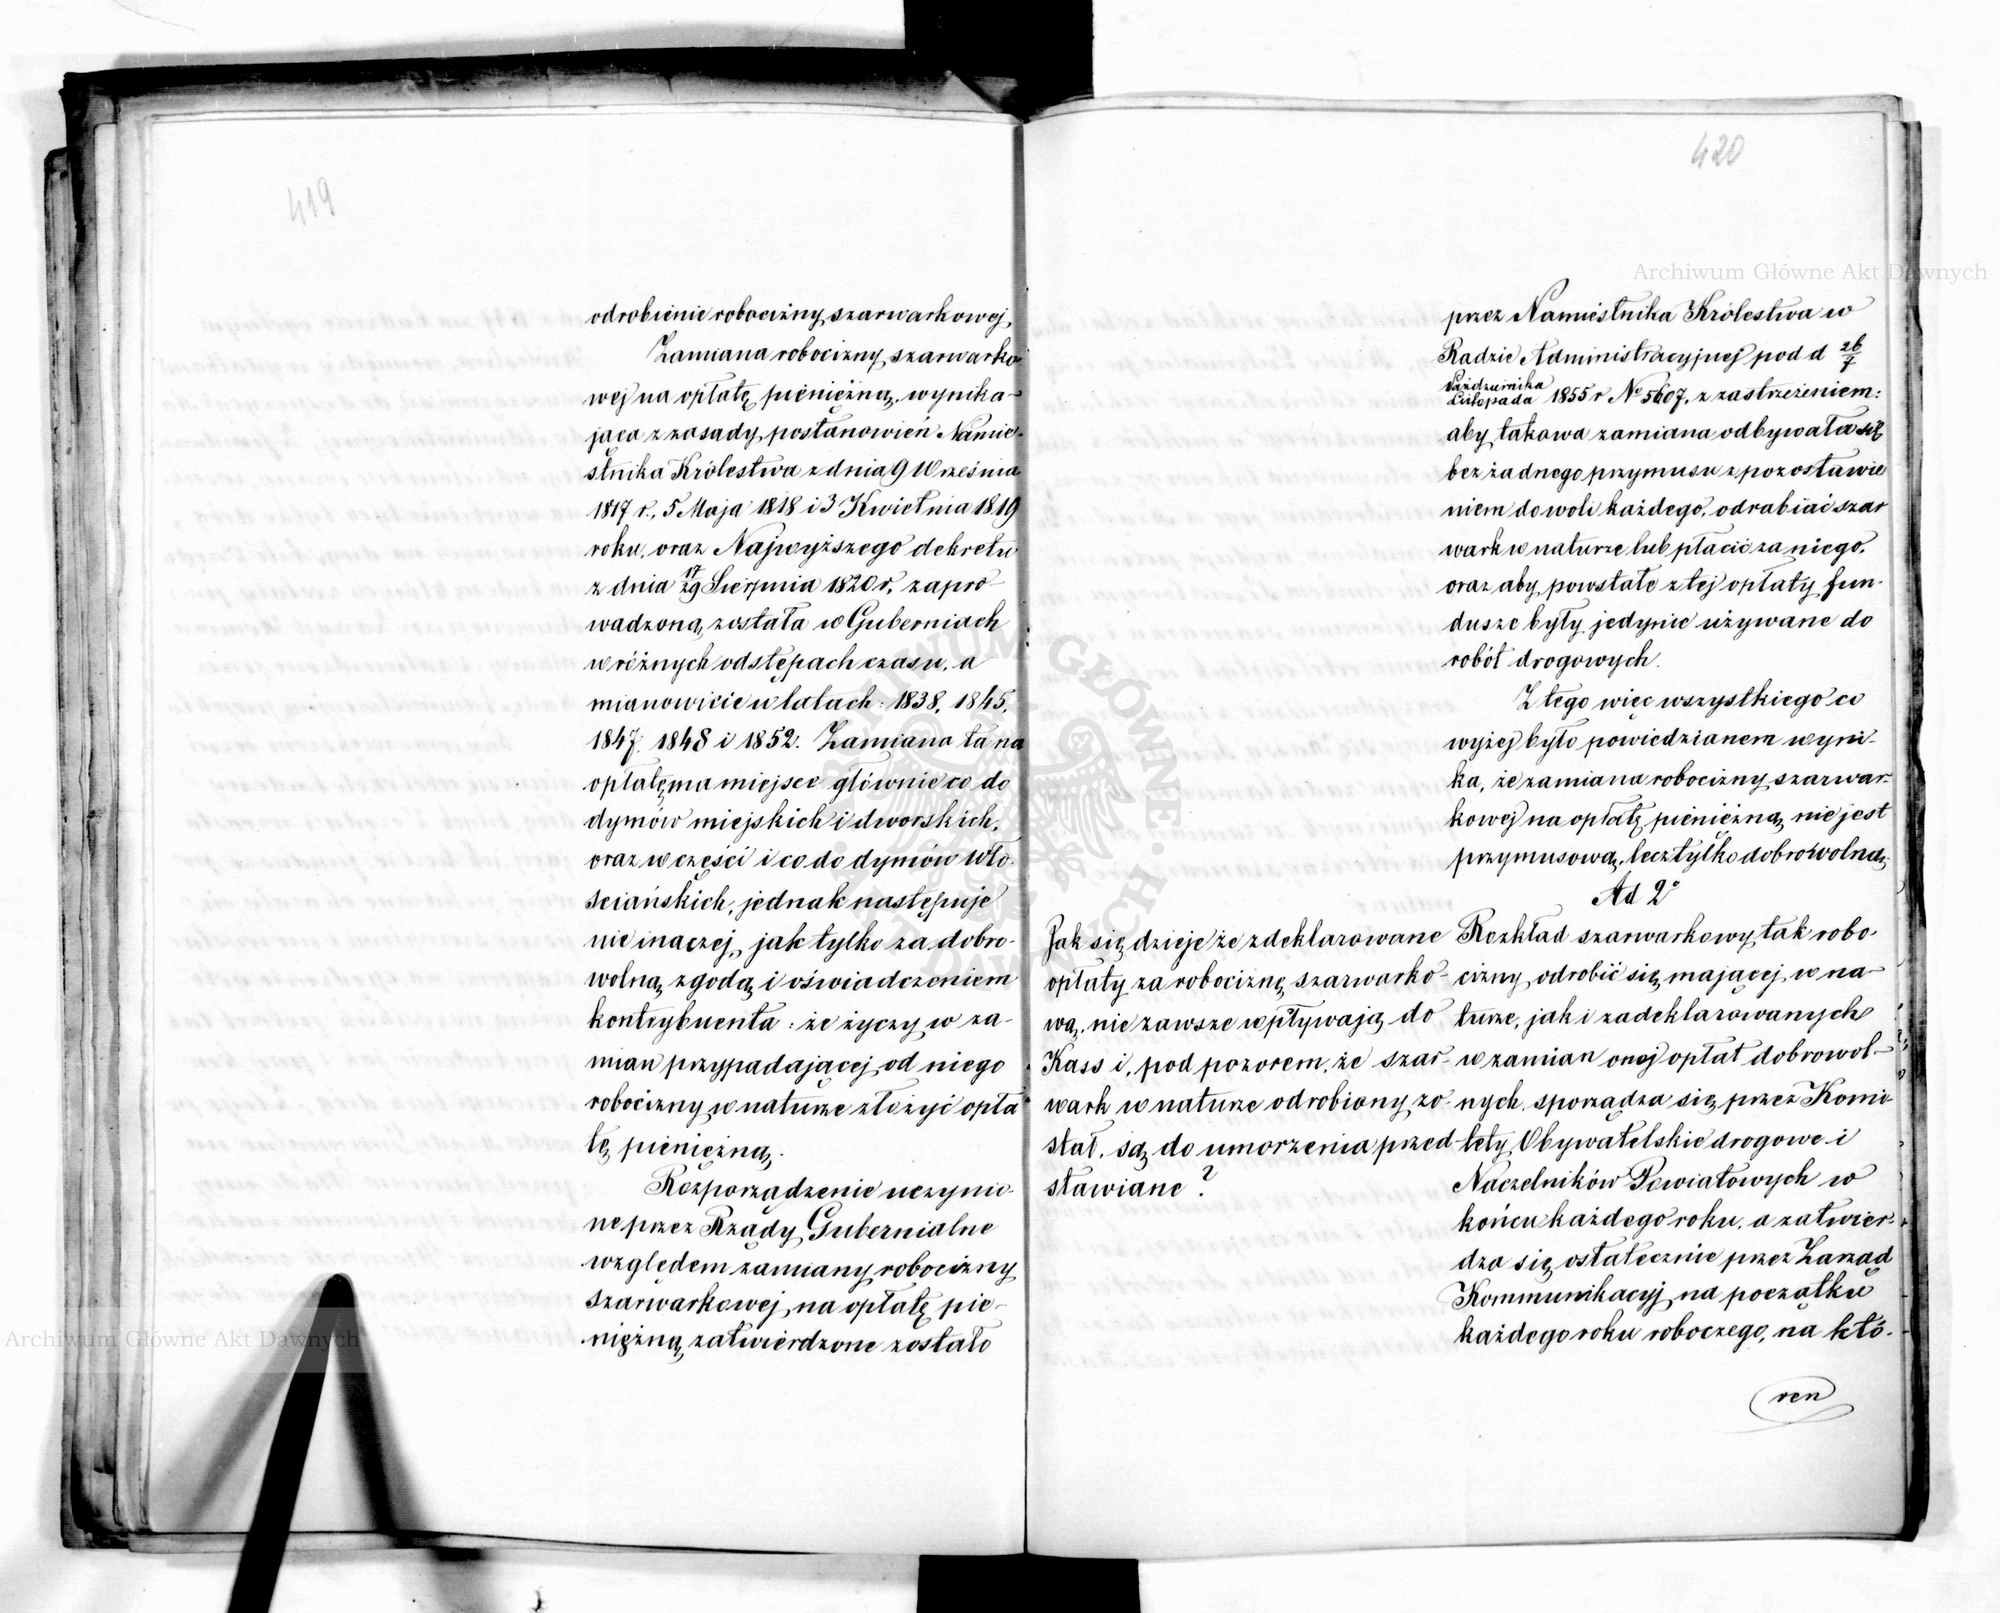 419
odrobienie robocizny szarwarkowej
Zamiana robocizny szarwarko
wej na opłatę pieniężną, wynika-
jąca z zasady postanowień Namie-
stnika Królestwa z dnia 9 Września
1817 r., 5 Maja 1818 i 3 Kwietnia 1819
roku, oraz Najwyższego dekretu
z dnia 17/29 Sierpnia 1820 r. zapro
wadzoną została w Guberniach
w różnych odstępach czasu, a
mianowicie w latach: 1838, 1845,
1847, 1848 i 1852. Zamiana ta na
opłatę ma miejsce głównie co do
dymów miejskich i dworskich,
oraz w części i co do dymów wło-
sciańskich, jednak następuje
nie inaczej, jak tylko za dobro-
wolną zgodą i oświadczeniem
kontrybuenta: że życzy w za-
mian przypadającej od niego
robocizny w naturze złożyć opła
tę pieniężną.
Rozporządzenie uczynio-
ne przez Rządy Gubernialne
względem zamiany robocizny
szarwarkowej na opłatę pie-
niężną zatwierdzone zostało
420
przez Namiestnika Królestwa w
Radzie Administracyjnej pod d 26/7
Października/Listopada 1855 r No 5607, z zastrzeżeniem:
aby takowa zamiana odbywała się
bez żadnego przymusu z pozostawie
niem do woli każdego, odrabiać szar
wark w naturze lub płacić za niego,
oraz aby powstałe z tej opłaty fun-
dusze były jedynie używane do
robót drogowych.
Z tego więc wszystkiego co
wyżej było powiedzianem wyni-
ka, że zamiana robocizny szarwar-
kowej na opłatę pieniężną nie jest
przymusową, lecz tylko dobrowolną.
Ad 2o
Jak się dzieje że zdeklarowane
opłaty za robociznę szarwarko-
wą, nie zawsze wpływają do
Kass i, pod pozorem, że szar-
wark w naturze odrobiony zo-
stał, są do umorzenia przed-
stawiane?
Rozkład szarwarkowy tak robo-
cizny odrobić się mającej w na-
turze, jak i zadeklarowanych
w zamian onej opłat dobrowol-
nych, sporządza się przez Komi-
tety Obywatelskie drogowe i
Naczelników Powiatowych w
końcu każdego roku, a zatwier-
dza się ostatecznie przez Zarząd
Kommunikacyj na początku
każdego roku roboczego, na któ-
ren
Archiwum Główne Akt Dawnych
Archiwum Główne Akt Dawnych
ARCHIWUM GŁÓWNE AKT DAWNYCH